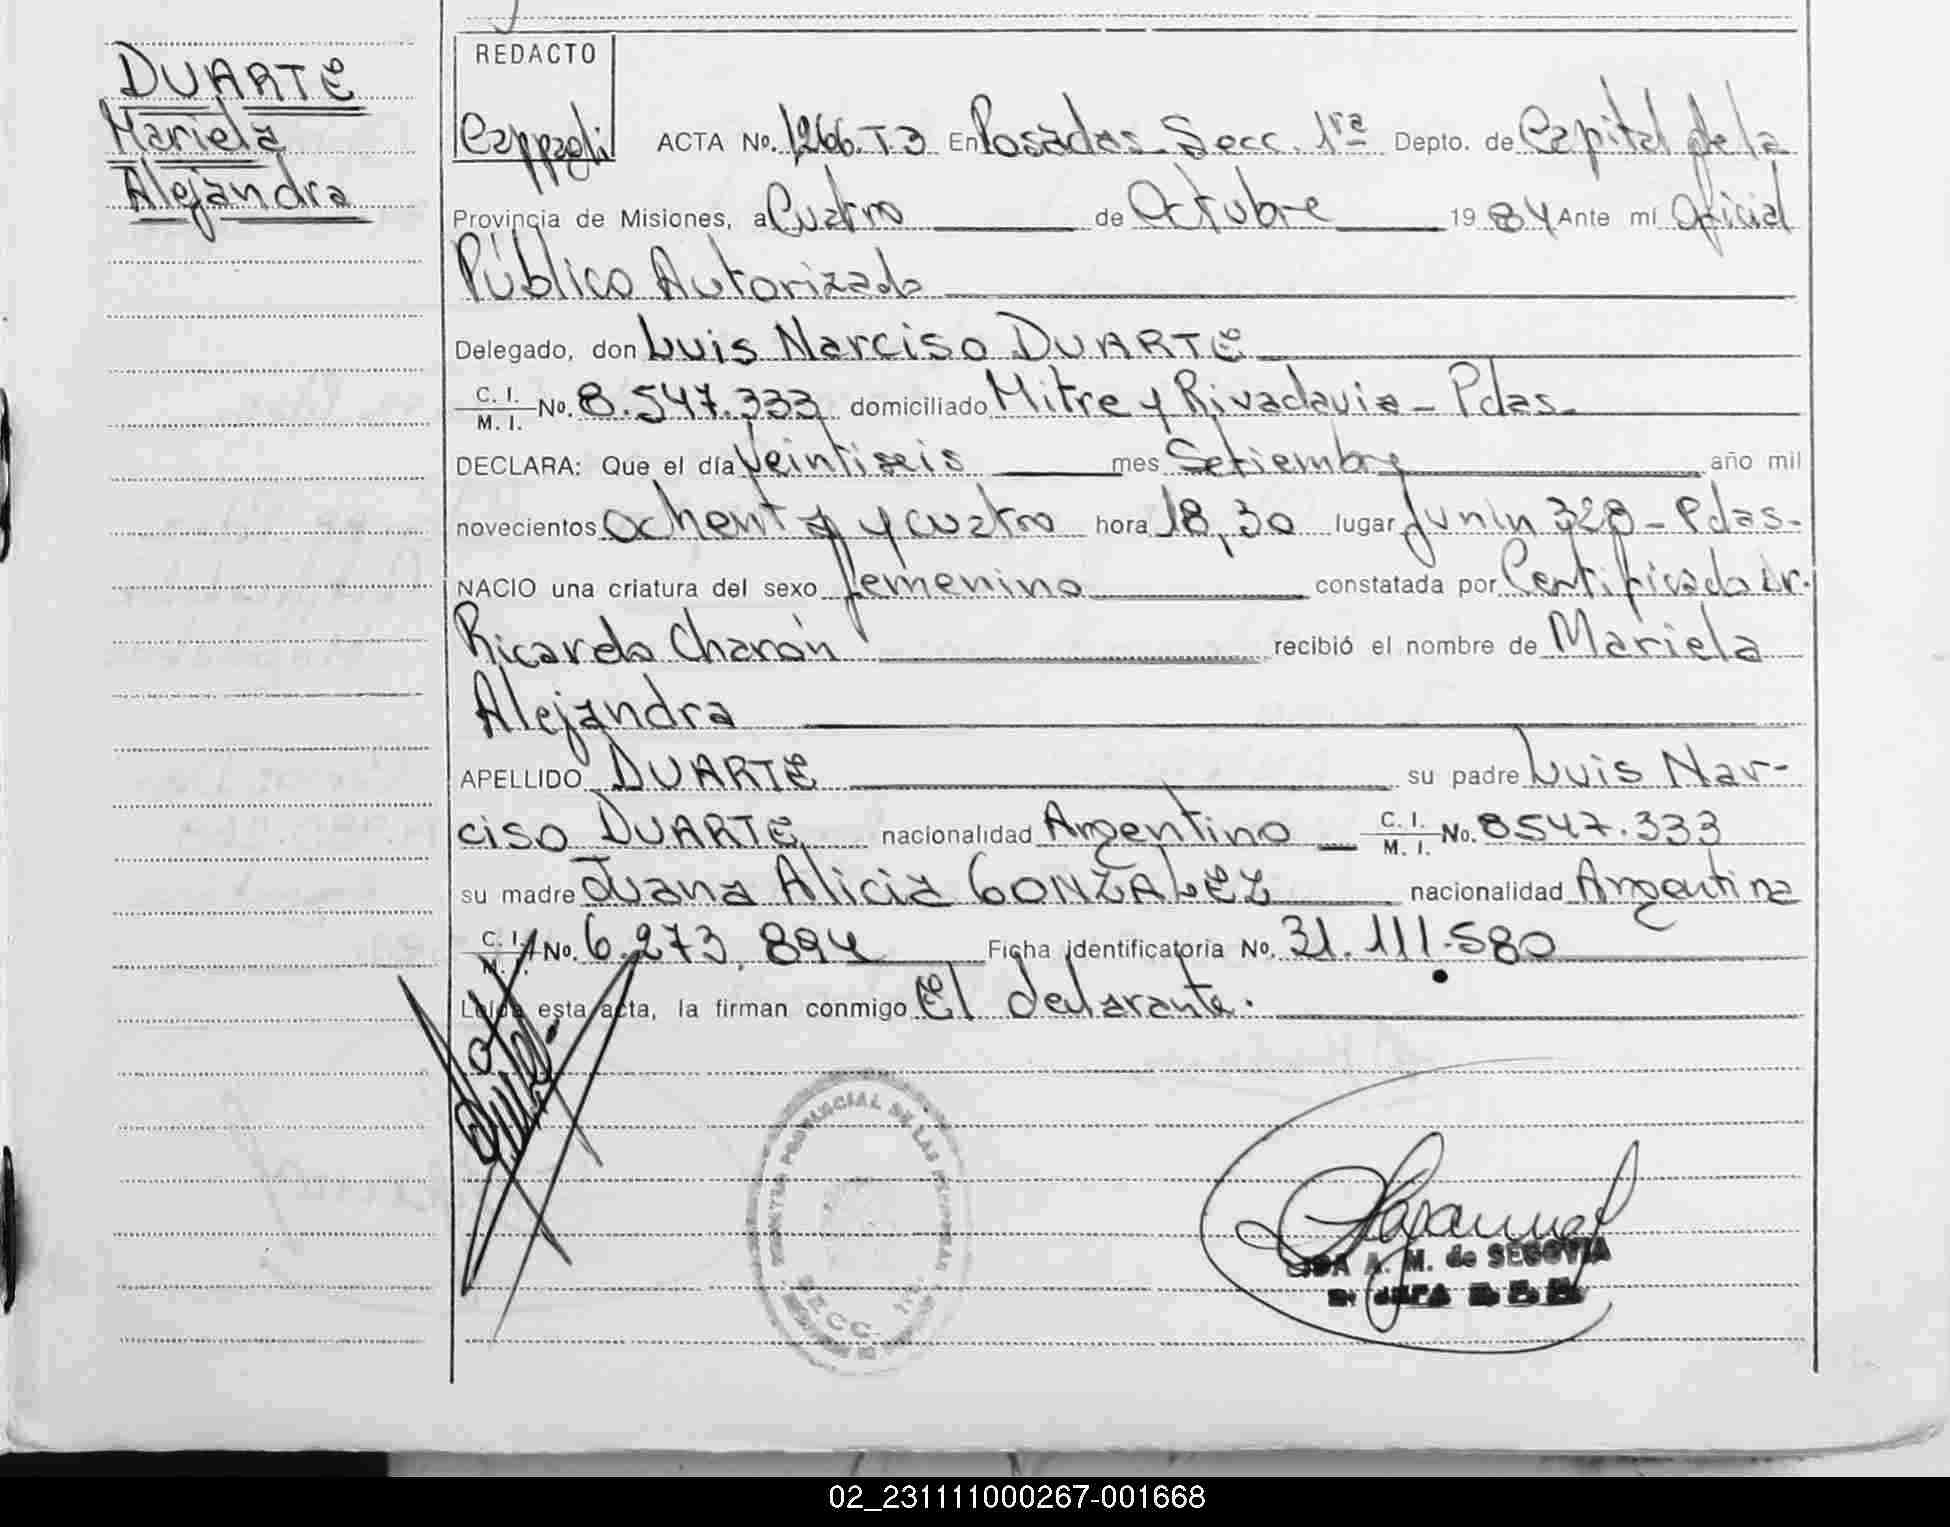 DUARTE
Mariela
Alejandra
REDACTO
ACTA No. 1266.T3 En Posadas - Secc. 1ra Depto. de Capital de la
Provincia de Misiones, a Cuatro de Octubre 1984 Ante mí Oficial
Público Autorizado
Delegado, don Luis Narciso DUARTE
C. I. / M. I. No. 8.547.333 domiciliado Mitre y Rivadavia - Pdas.
DECLARA: Que el día Veintiseis mes Setiembre año mil
novecientos ochenta y cuatro hora 18,30 lugar Junin 328 - Pdas.
NACIO una criatura del sexo femenino constatada por Certificado Dr.
Ricardo Charón recibió el nombre de Mariela
Alejandra
APELLIDO DUARTE su padre Luis Nar-
ciso DUARTE nacionalidad Argentino C. I. / M. I. No. 8547.333
su madre Juana Alicia GONZALEZ nacionalidad Argentina
C. I. / M. I. No. 6.273.894 Ficha identificatoria No. 31.111.580
Leída esta acta, la firman conmigo El declarante.
REGISTRO PROVINCIAL DE LAS PERSONAS
SECC. 1ra
A. M. de SEGOVIA
JEFA
02_231111000267-001668